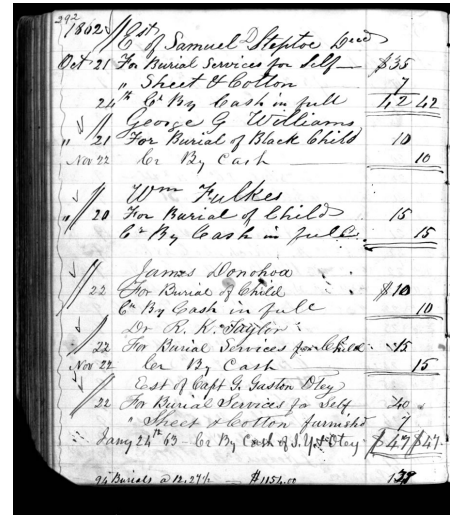 292
1862 Est
of Samuel D Steptoe Decd
Oct 21 For Burial Services for Self — $35
" Sheet & Cotton 7
24th Cr By Cash in full 42 42
George G Williams
" 21 For Burial of Black Child 10
Nov 22 Cr By Cash 10
Wm Fulkes
" 20 For Burial of Child 15
Cr By Cash in full 15
James Donohoa
22 For Burial of Child $10
Cr By Cash in full 10
Dr R. K. Taylor
22 For Burial Services for Child 15
Nov 22 Cr By Cash 15
Est of Capt G. Gaston Otey
22 For Burial Services for Self 40
" Sheet & Cotton furnished 7
Jany 24th 63 - Cr By Cash of J. Otey $47 $47
94 Burials @ 12.27½ — $1154.00 139